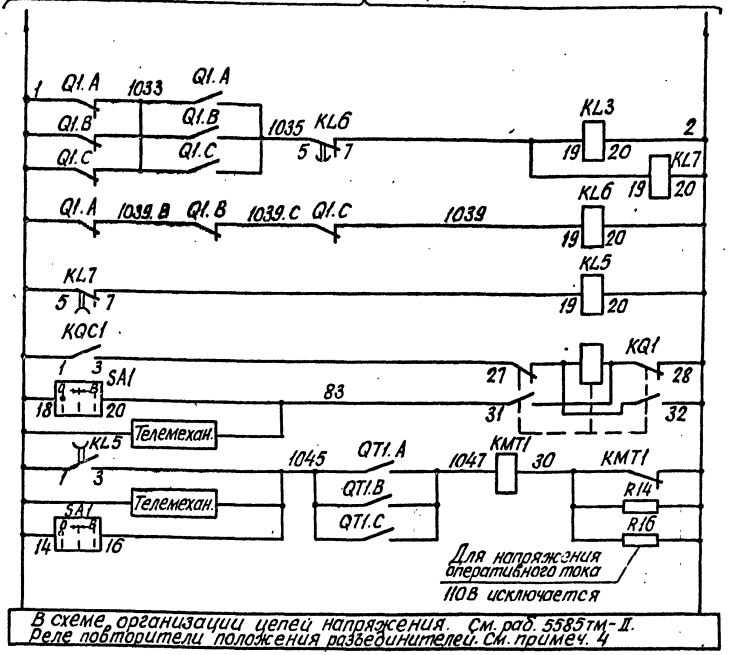 Q1.A 1033 Q1.A
1
Q1.B Q1.B 1035 KL6 KL3 2
5 7 19 20
Q1.C Q1.C KL7
19 20
Q1.A 1039.B Q1.B 1039.C Q1.C 1039 KL6
19 20
KL7 KL5
5 7 19 20
KQC1 KQ1
1 3 27 28
SA1 83
18 20 31 32
О В
Телемехан.
KL5 1045 QT1.A 1047 KMT1 30 KMT1
1 3
QT1.B R14
Телемехан.
SA1 QT1.C R16
О В
14 16
Для напряжения
оперативного тока
110В исключается
В схеме организации цепей напряжения. См. раб. 5585тм-II.
Реле повторители положения разъединителей. См. примеч. 4